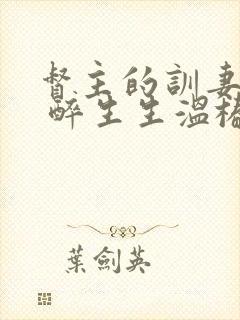 督主的訓妻
醉生生溫椿
葉劍英